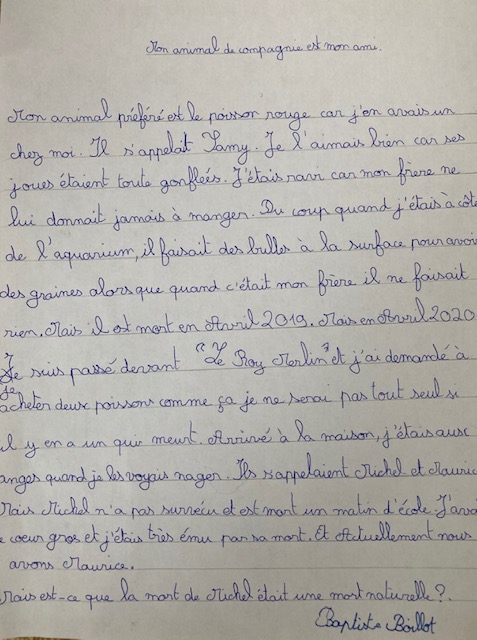 Mon animal de compagnie est mon ami.
Mon animal préféré est le poisson rouge car j'en avais un
chez moi. Il s'appelait Samy. Je l'aimais bien car ses
joues étaient toute gonflées. J'étais ravi car mon frère ne
lui donnait jamais à manger. Du coup quand j'étais à côté
de l'aquarium, il faisait des bulles à la surface pour avoir
des graines alors que quand c'était mon frère il ne faisait
rien. Mais il est mort en Avril 2019. Mais en Avril 2020
Je suis passé devant "Le Roy Merlin" et j'ai demandé à
je
acheter deux poissons comme ça je ne serai pas tout seul si
il y en a un qui meurt. Arrivé à la maison, j'étais aux
anges quand je les voyais nager. Ils s'appelaient Michel et Maurice
Mais Michel n'a pas survécu et est mort un matin d'école. J'avai
e coeur gros et j'étais très ému par sa mort. Et Actuellement nous
avons Maurice.
Mais est-ce que la mort de Michel était une mort naturelle?.
Baptiste Boillot